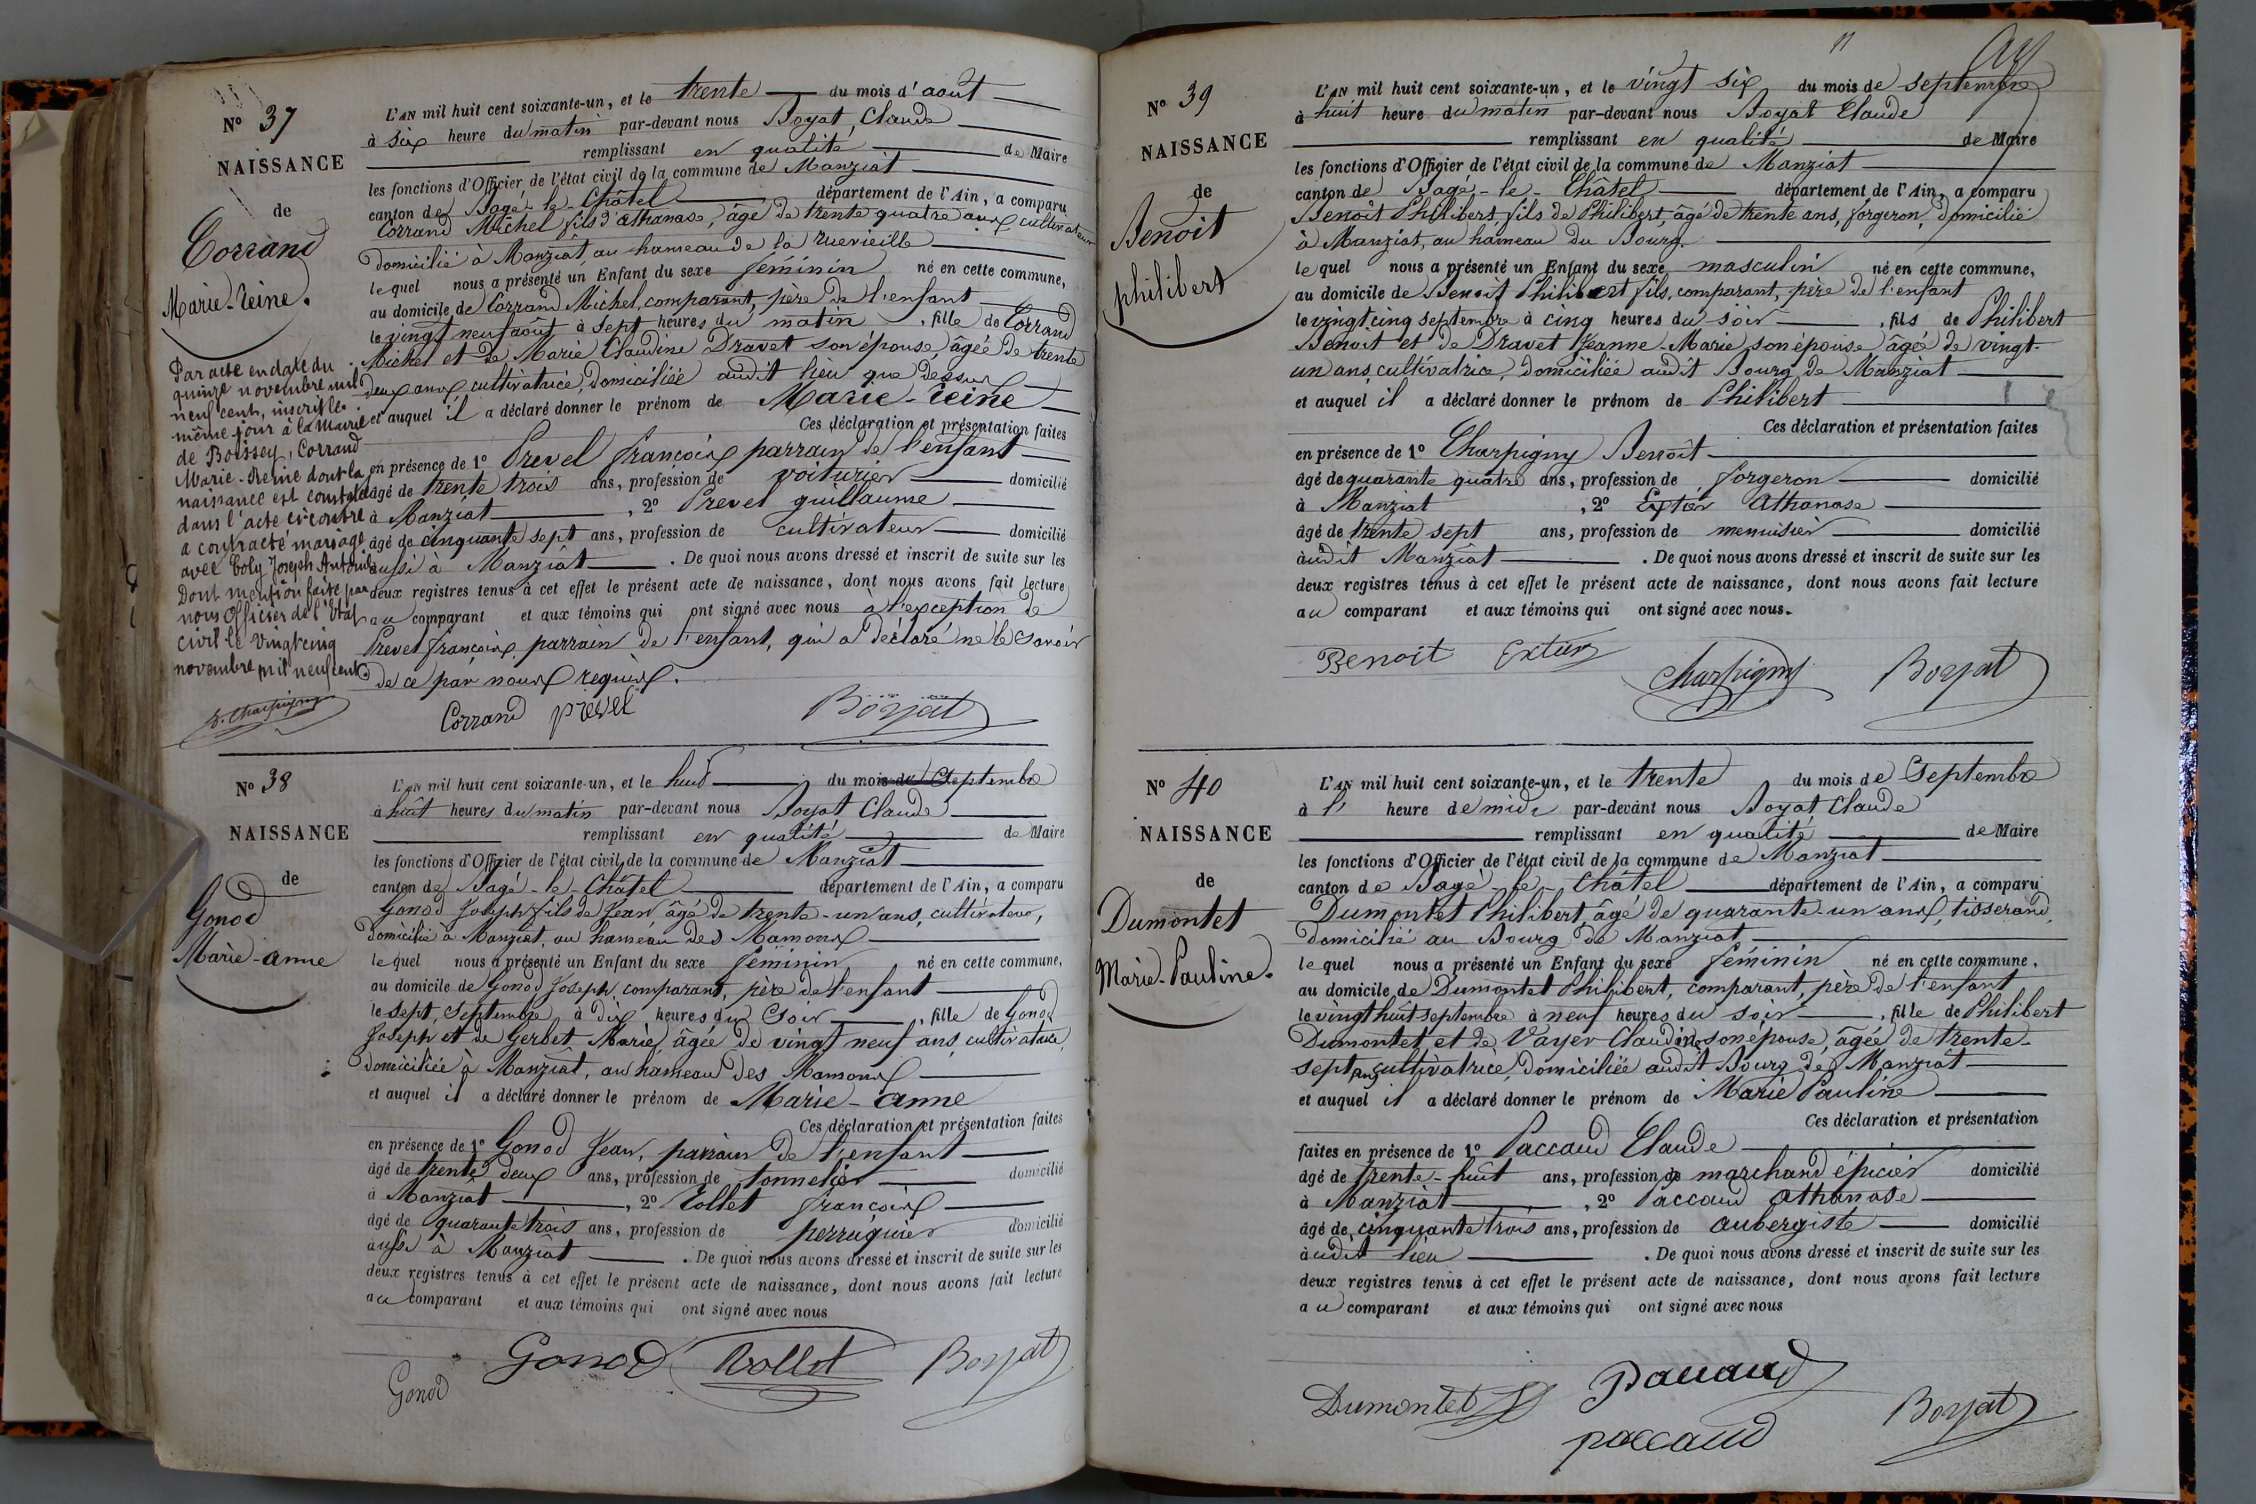 N° 37
NAISSANCE
de
Corrand
Marie-Reine.
Par acte en date du
quinze novembre mil
neuf cent, inscrit le
même jour à la Mairie
de Boissey, Corrand
Marie-Reine dont la
naissance est constatée
dans l'acte ci-contre
a contracté mariage
avec Coly Joseph Antoine
Dont mention faite par
nous Officier de l'Etat
civil le vingt cinq
novembre mil neuf cent.
L'AN mil huit cent soixante-un, et le trente du mois d'août
à six heure du matin par-devant nous Boyat Claude
remplissant en qualité de Maire
les fonctions d'Officier de l'état civil de la commune de Manziat
canton de Bagé-le-Châtel département de l'Ain, a comparu
Corrand Michel fils d'athanase, âgé de trente quatre ans cultivateur
domicilié à Manziat, au hameau de la
lequel nous a présenté un Enfant du sexe féminin né en cette commune,
au domicile de Corrand Michel, comparant, père de l'enfant
le vingt neuf août à sept heures du matin, fille de Corrand
Michel et de Marie Claudine Dravet son épouse, âgée de trente
deux ans, cultivatrice, domiciliée audit lieu que dessus
et auquel il a déclaré donner le prénom de Marie-Reine
Ces déclaration et présentation faites
en présence de 1° Prevel françois parrain de l'enfant
âgé de trente trois ans, profession de voiturier domicilié
à Manziat, 2° Prevel guillaume
âgé de cinquante sept ans, profession de cultivateur domicilié
aussi à Manziat. De quoi nous avons dressé et inscrit de suite sur les
deux registres tenus à cet effet le présent acte de naissance, dont nous avons fait lecture
au comparant et aux témoins qui ont signé avec nous à l'exception de
Prevel françois, parrain de l'enfant, qui a déclaré ne le savoir
de ce par nous requis.
Corrand prevel Boyat
N° 38
NAISSANCE
de
Gonod
Marie-anne
L'AN mil huit cent soixante-un, et le huit du mois de Septembre
à huit heures du matin par-devant nous Boyat Claude
remplissant en qualité de Maire
les fonctions d'Officier de l'état civil de la commune de Manziat
canton de Bagé-le-Châtel département de l'Ain, a comparu
Gonod Joseph fils de Jean âgé de trente-un ans, cultivateur,
domicilié à Manziat, au hameau des Mamons
lequel nous a présenté un Enfant du sexe féminin né en cette commune,
au domicile de Gonod Joseph, comparant, père de l'enfant
le sept Septembre à dix heures du Soir, fille de Gonod
Joseph et de Gerbet Marie, âgée de vingt neuf ans, cultivatrice,
domiciliée à Manziat, au hameau des Mamons
et auquel il a déclaré donner le prénom de Marie-anne
Ces déclaration et présentation faites
en présence de 1° Gonod Jean, parrain de l'enfant
âgé de trente deux ans, profession de tonnelier domicilié
à Manziat, 2° Rollet françois
âgé de quarante trois ans, profession de perruquier domicilié
aussi à Manziat. De quoi nous avons dressé et inscrit de suite sur les
deux registres tenus à cet effet le présent acte de naissance, dont nous avons fait lecture
au comparant et aux témoins qui ont signé avec nous
Gonod Gonod Rollet Boyat
N° 39
NAISSANCE
de
Benoît
philibert
L'AN mil huit cent soixante-un, et le vingt six du mois de septembre
à huit heure du matin par-devant nous Boyat Claude
remplissant en qualité de Maire
les fonctions d'Officier de l'état civil de la commune de Manziat
canton de Bagé-le-Châtel département de l'Ain, a comparu
Benoît Philibert, fils de Philibert, âgé de trente ans, forgeron, domicilié
à Manziat, au hameau du Bourg.
lequel nous a présenté un Enfant du sexe masculin né en cette commune,
au domicile de Benoît Philibert fils, comparant, père de l'enfant
le vingt cinq septembre à cinq heures du soir, fils de Philibert
Benoît et de Dravet Jeanne-Marie son épouse âgée de vingt-
un ans, cultivatrice, domiciliée audit Bourg de Manziat
et auquel il a déclaré donner le prénom de Philibert
Ces déclaration et présentation faites
en présence de 1° Charpigny Benoît
âgé de quarante quatre ans, profession de forgeron domicilié
à Manziat, 2° Extier Athanase
âgé de trente sept ans, profession de menuisier domicilié
audit Manziat. De quoi nous avons dressé et inscrit de suite sur les
deux registres tenus à cet effet le présent acte de naissance, dont nous avons fait lecture
au comparant et aux témoins qui ont signé avec nous.
Benoit Extier Charpigny Boyat
N° 40
NAISSANCE
de
Dumontet
Marie-Pauline.
L'AN mil huit cent soixante-un, et le trente du mois de Septembre
à l' heure de midi par-devant nous Boyat Claude
remplissant en qualité de Maire
les fonctions d'Officier de l'état civil de la commune de Manziat
canton de Bagé-le-Châtel département de l'Ain, a comparu
Dumontet Philibert, âgé de quarante-un ans, tisserand,
domicilié au Bourg de Manziat
lequel nous a présenté un Enfant du sexe féminin né en cette commune,
au domicile de Dumontet Philibert, comparant, père de l'enfant
le vingt huit septembre à neuf heures du soir, fille de Philibert
Dumontet et de Vayer Claudine son épouse, âgée de trente-
sept ans cultivatrice, domiciliée audit Bourg de Manziat
et auquel il a déclaré donner le prénom de Marie Pauline
Ces déclaration et présentation
faites en présence de 1° Paccaud Claude
âgé de trente-huit ans, profession de marchand épicier domicilié
à Manziat, 2° Paccaud Athanase
âgé de cinquante trois ans, profession de aubergiste domicilié
audit lieu. De quoi nous avons dressé et inscrit de suite sur les
deux registres tenus à cet effet le présent acte de naissance, dont nous avons fait lecture
au comparant et aux témoins qui ont signé avec nous
Dumontet Paccaud Boyat
paccaud